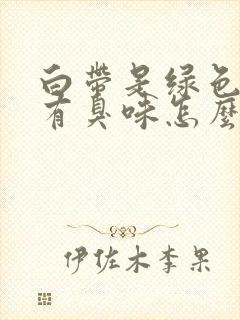 白带是绿色
有臭味怎麼
伊佐木李果